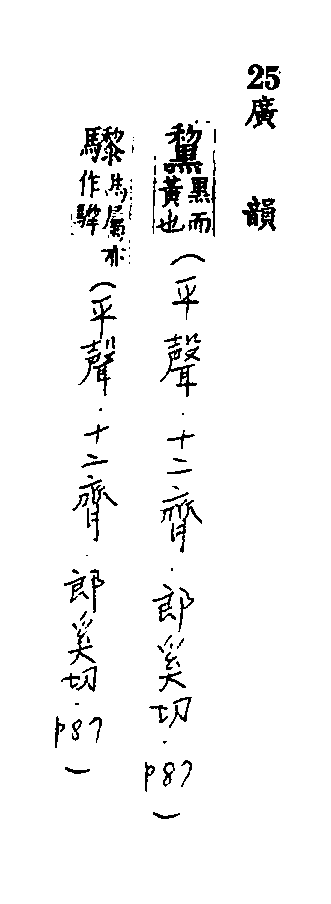 25 廣韻
黧 黑而黃也(平聲.十二齊.郎奚切.P87)
馬屬亦作(平聲.十二齊.郎奚切.P87)